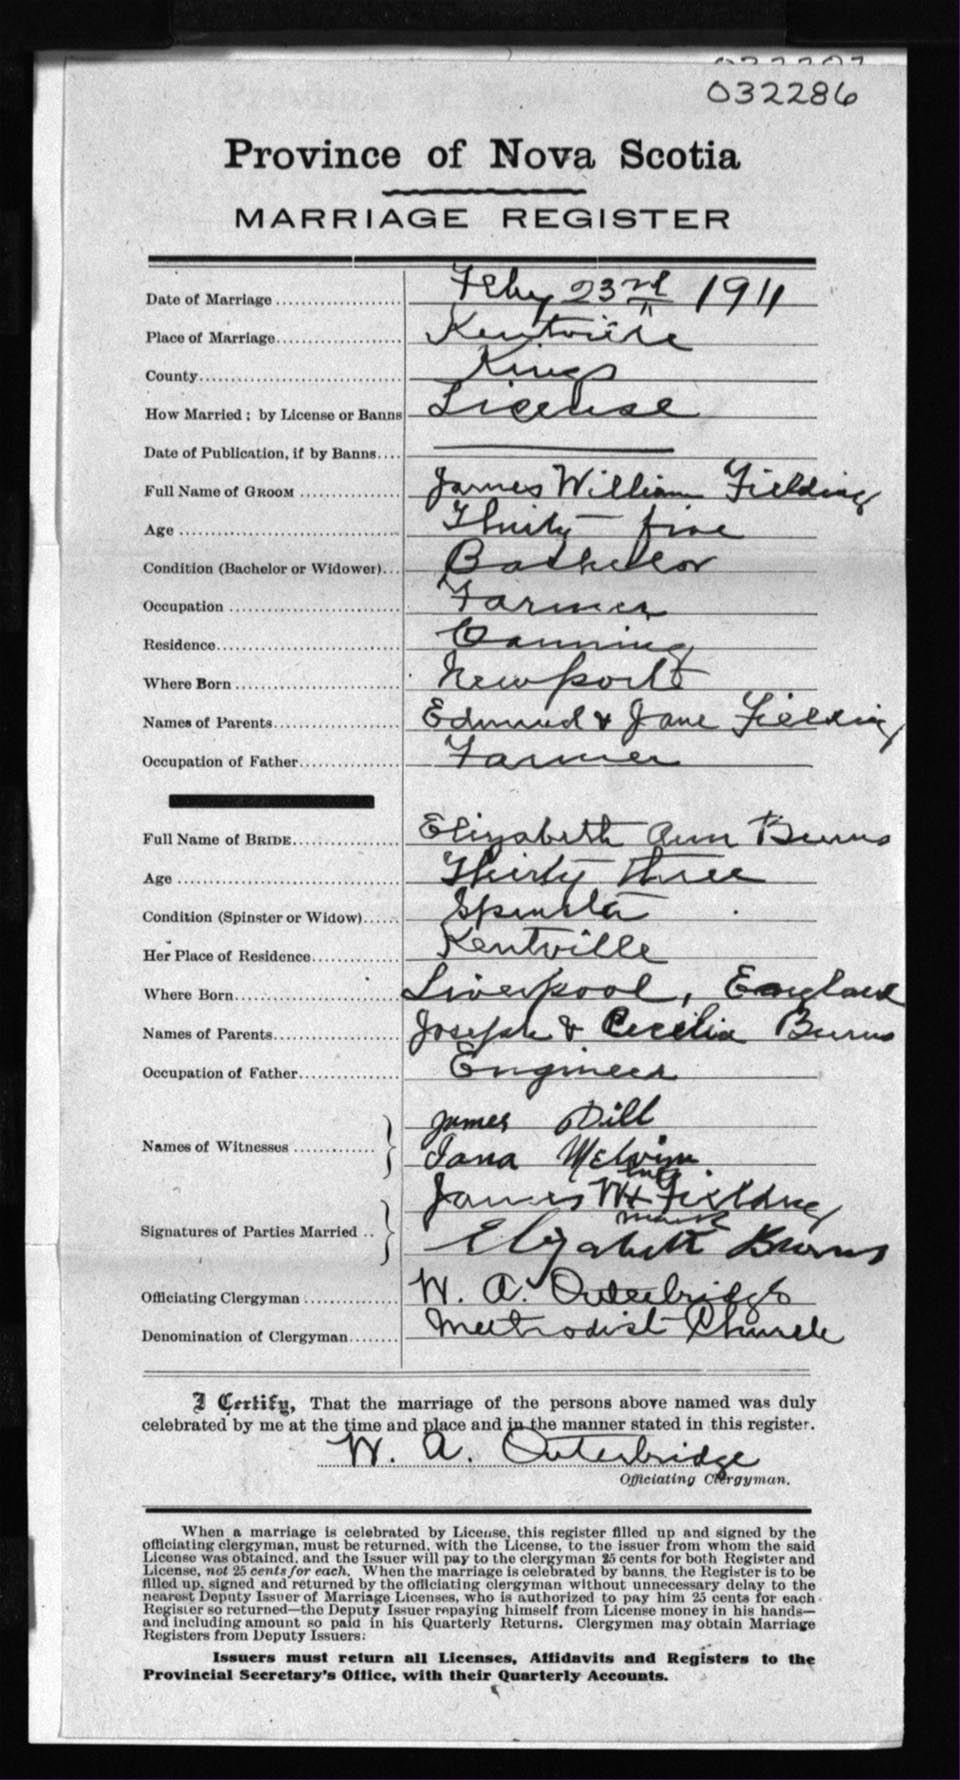 032286
Province of Nova Scotia
MARRIAGE REGISTER
Date of Marriage Feby 23rd 1911
Place of Marriage Kentville
County Kings
How Married; by License or Banns License
Date of Publication, if by Banns
Full Name of GROOM James William Fielding
Age Thirty-five
Condition (Bachelor or Widower) Bachelor
Occupation Farmer
Residence Canning
Where Born Newport
Names of Parents Edmund & Jane Fielding
Occupation of Father Farmer
Full Name of BRIDE Elizabeth Ann Burns
Age Thirty three
Condition (Spinster or Widow) Spinster
Her Place of Residence Kentville
Where Born Liverpool, England
Names of Parents Joseph & Cecilia Burns
Occupation of Father Engineer
Names of Witnesses James Dill
Melvin
his
Signatures of Parties Married James W + Fielding
mark
Elizabeth Burns
Officiating Clergyman W. A. Outerbridge
Denomination of Clergyman Methodist Church
I Certify, That the marriage of the persons above named was duly
celebrated by me at the time and place and in the manner stated in this register.
W. A. Outerbridge
Officiating Clergyman.
When a marriage is celebrated by License, this register filled up and signed by the
officiating clergyman, must be returned, with the License, to the issuer from whom the said
License was obtained, and the Issuer will pay to the clergyman 25 cents for both Register and
License, not 25 cents for each. When the marriage is celebrated by banns, the Register is to be
filled up, signed and returned by the officiating clergyman without unnecessary delay to the
nearest Deputy Issuer of Marriage Licenses, who is authorized to pay him 25 cents for each
Register so returned—the Deputy Issuer repaying himself from License money in his hands—
and including amount so paid in his Quarterly Returns. Clergymen may obtain Marriage
Registers from Deputy Issuers:
Issuers must return all Licenses, Affidavits and Registers to the
Provincial Secretary's Office, with their Quarterly Accounts.